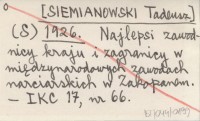 [SIEMIANOWSKI Tadeusz]
(S) 1926. Najlepsi zawod-
nicy kraju i zagranicy w
międzynarodowych zawodach
narciarskich w Zakopanem.
– IKC 17, nr 66.